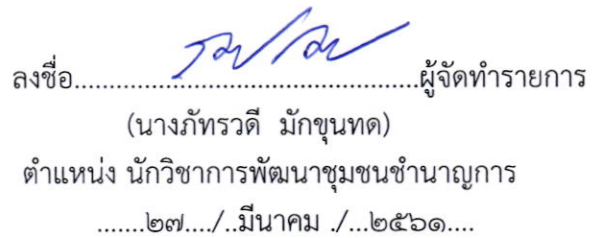 ลงชื่อ..........................................ผู้จัดทำรายการ
(นางภัทรวดี มักขุนทด)
ตำแหน่ง นักวิชาการพัฒนาชุมชนชำนาญการ
.......๒๗..../..มีนาคม ./...๒๕๖๑....